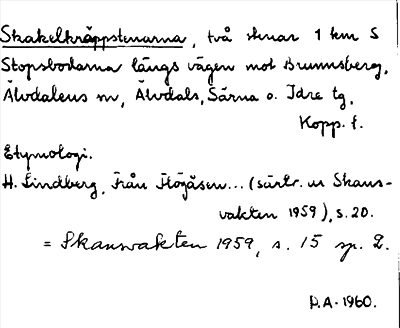 Skakelkräppstenarna, två stenar 1 km S
Stopsbodarna längs vägen mot Brunnsberg,
Älvdalens sn, Älvdals, Särna o. Idre tg,
Kopp. l.
Etymologi.
H. Lindberg, Från Högåsen... (särtr. ur Skans-
vakten 1959), s. 20.
= Skansvakten 1959, s. 15 sp. 2.
D.A. 1960.